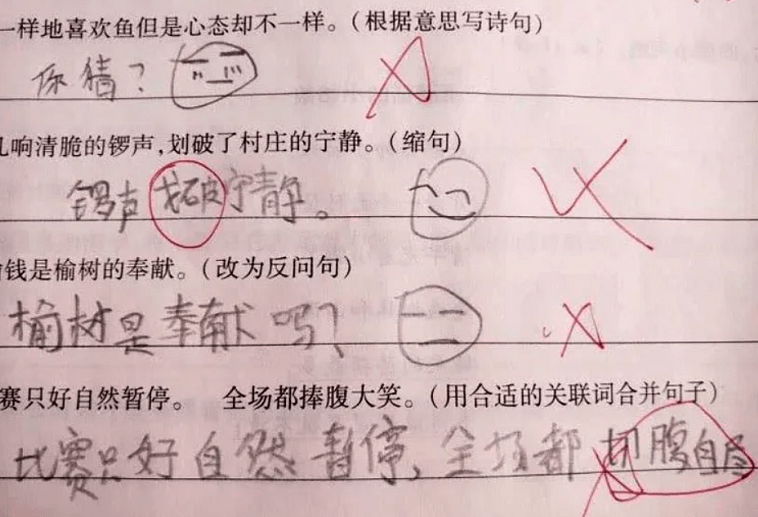 一样地喜欢鱼但是心态却不一样。(根据意思写诗句)
你猜?
响清脆的锣声,划破了村庄的宁静。(缩句)
锣声划破宁静。
钱是榆树的奉献。(改为反问句)
榆树是奉献吗?
赛只好自然暂停。 全场都捧腹大笑。(用合适的关联词合并句子)
比赛只好自然暂停,全场都切腹自尽